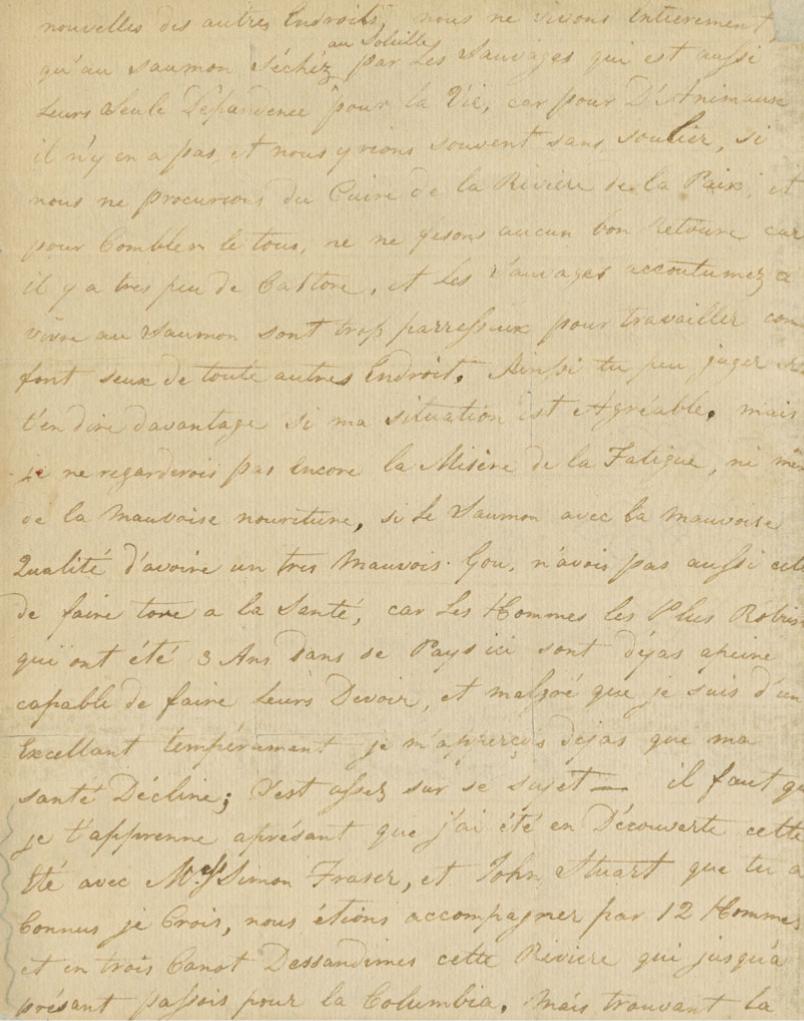 nouvelles des autres Endroits, nous ne vivons entierement
qu'au Saumon Séchéz au Soleille par Les Sauvages qui est aussi
Leurs Seule Dependence pour la Vie, car pour D'Animaux
il n'y en a pas et nous yrions souvent sans soulier, si
nous ne procurions du Cuire de la Riviere de la Paix, et
pour Combler le tous, ne ne fesons aucun bon Retoure car
il y a tres peu de Castore, et Les Sauvages accoutumez a
vivre au Saumon sont trop parressieux pour travailler com
font seux de toute autres Endroit. Ainsi tu peu juger s
t'en dire davantage si ma situation est Agréable. mais
je ne regarderois pas Encore la Misère de la Fatigue, ni mêm
de la Mauvaise nouriture, si Le Saumon avec la mauvaise
Qualité d'avoire un tres Mauvois Gou, n'avois pas aussi cell
de faire tore a la Santé, car Les Hommes les Plus Robus
qui ont été 3 Ans dans se Pays ici sont déjas apeine
capable de faire Leurs Devoir, et malgré que je suis d'un
Excellant tempérament je m'apperçois dejas que ma
santé Décline; C'est assez sur se sujet — il faut qu
je t'apprenne aprésant que j'ai été en Découverte cette
Eté avec Mess Simon Fraser, et John Stuart que tu a
Connus je Crois, nous étions accompagner par 12 Hommes
et en trois Canot Dessandimes cette Riviere qui jusqu'a
présant passois pour la Columbia. Mais trouvant la